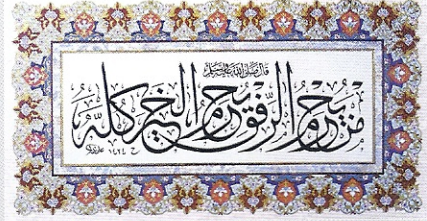 قال صلى الله عليه وسلم
من يحرم الرفق يحرم الخير كله
١٤٢٤